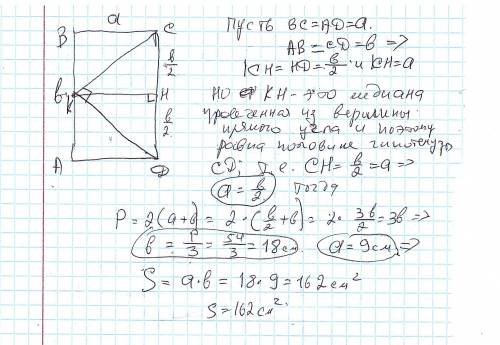 a
B
C
в/2
в
K
H
в/2
A
D
Пусть BC=AD=a.
AB=CD=в =>
KH=HD=в/2 и KH=a
Но KH - это медиана
проведенная из вершины
прямого угла и поэтому
равна половине гипотенузы
CD; т.е. CH=в/2=a =>
a=в/2 тогда
P=2(a+в)=2·(в/2+в)=2·3в/2=3в =>
в=P/3=54/3=18см. a=9см =>
S=a·в=18·9=162см²
S=162см²